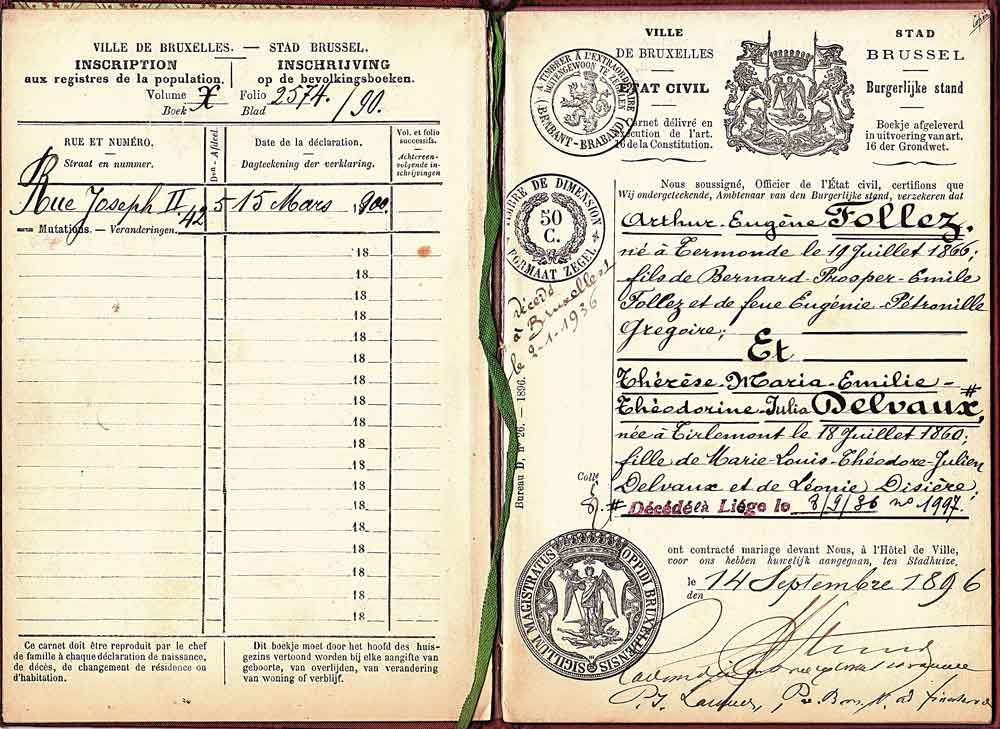 VILLE DE BRUXELLES. — STAD BRUSSEL.
INSCRIPTION
aux registres de la population.
INSCHRIJVING
op de bevolkingsboeken.
Volume X Folio 2574./90.
Boek Blad
RUE ET NUMÉRO.
Straat en nummer.
Don - Afdeel.
Date de la déclaration.
Dagteekening der verklaring.
Vol. et folio successifs.
Achtereenvolgende inschrijvingen
Rue Joseph II. 42 5 15 Mars 1900.
Mutations. — Veranderingen.
18
18
18
18
18
18
18
18
18
18
18
18
18
18
18
18
18
Ce carnet doit être reproduit par le chef
de famille à chaque déclaration de naissance,
de décès, de changement de résidence ou
d'habitation.
Dit boekje moet door het hoofd des huis-
gezins vertoond worden bij elke aangifte van
geboorte, van overlijden, van verandering
van woning of verblijf.
Copie
VILLE
DE BRUXELLES
ÉTAT CIVIL
Carnet délivré en
exécution de l'art.
16 de la Constitution.
STAD
BRUSSEL
Burgerlijke stand
Boekje afgeleverd
in uitvoering van art.
16 der Grondwet.
A TIMBRER A L'EXTRAORDINAIRE
BUITENGEWOON TE ZEGELEN
(BRABANT-BRABAND)
TIMBRE DE DIMENSION
50
C.
FORMAAT ZEGEL
Nous soussigné, Officier de l'État civil, certifions que
Wij ondergeteekende, Ambtenaar van den Burgerlijke stand, verzekeren dat
Arthur-Eugène Follez.
né à Termonde le 19 Juillet 1866;
fils de Bernard-Prosper-Emile
Follez et de feue Eugénie-Pétronille
Gregoire;
Et
Thérèse-Maria-Emilie-
Théodorine-Julia Delvaux, #
née à Tirlemont le 18 Juillet 1860;
fille de Marie-Louis-Théodore-Julien
Delvaux et de Léonie Disière;
# Décédé à Liége le 8/9/36 no 1997.
décédé
à Bruxelles 1
le 2-1-1936
Bureau D, no 26. — 1896.
Collé
SIGILLUM MAGISTRATUS OPPIDI BRUXELLENSIS
ont contracté mariage devant Nous, à l'Hôtel de Ville,
voor ons hebben huwelijk aangegaan, ten Stadhuize,
le 14 Septembre 1896
den